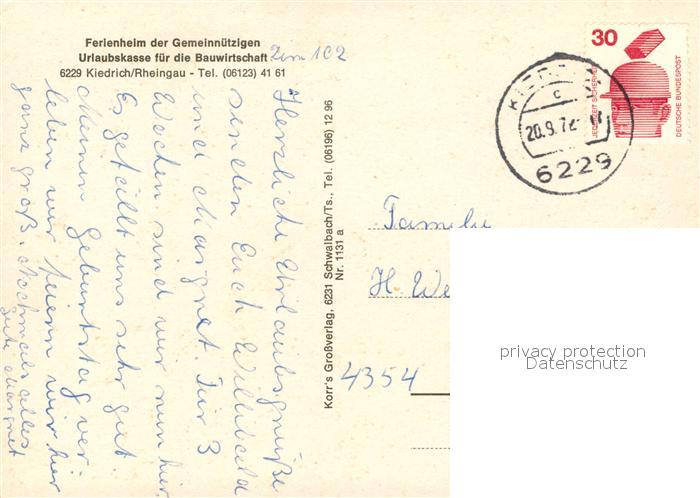 Ferienheim der Gemeinnützigen
Urlaubskasse für die Bauwirtschaft
6229 Kiedrich/Rheingau - Tel. (06123) 41 61
Zim 102
Herzliche Urlaubsgrüße
senden Euch Willibald
und Margret. Für 3
Wochen sind wir nun hier.
Es gefällt uns sehr gut.
Meinen Geburtstag ver-
leben wir feiern wir hier
ganz groß. Nochmals alles
gute Margret
Korr's Großverlag, 6231 Schwalbach/Ts., Tel. (06196) 12 96
Nr. 1131 a
30
JEDERZEIT SICHERHEIT
DEUTSCHE BUNDESPOST
c
20.9.72
6229
Familie
H. We
4354
privacy protection
Datenschutz